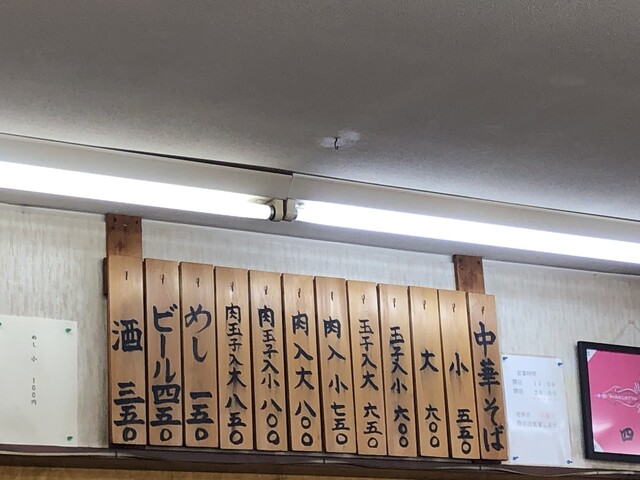 中華そば
小 五五〇
大 六〇〇
玉子入小 六〇〇
玉子入大 六五〇
肉入小 七五〇
肉入大 八〇〇
肉玉子入小 八〇〇
肉玉子入大 八五〇
めし 一五〇
ビール 四五〇
酒 三五〇
めし 小 100円
営業時間
四